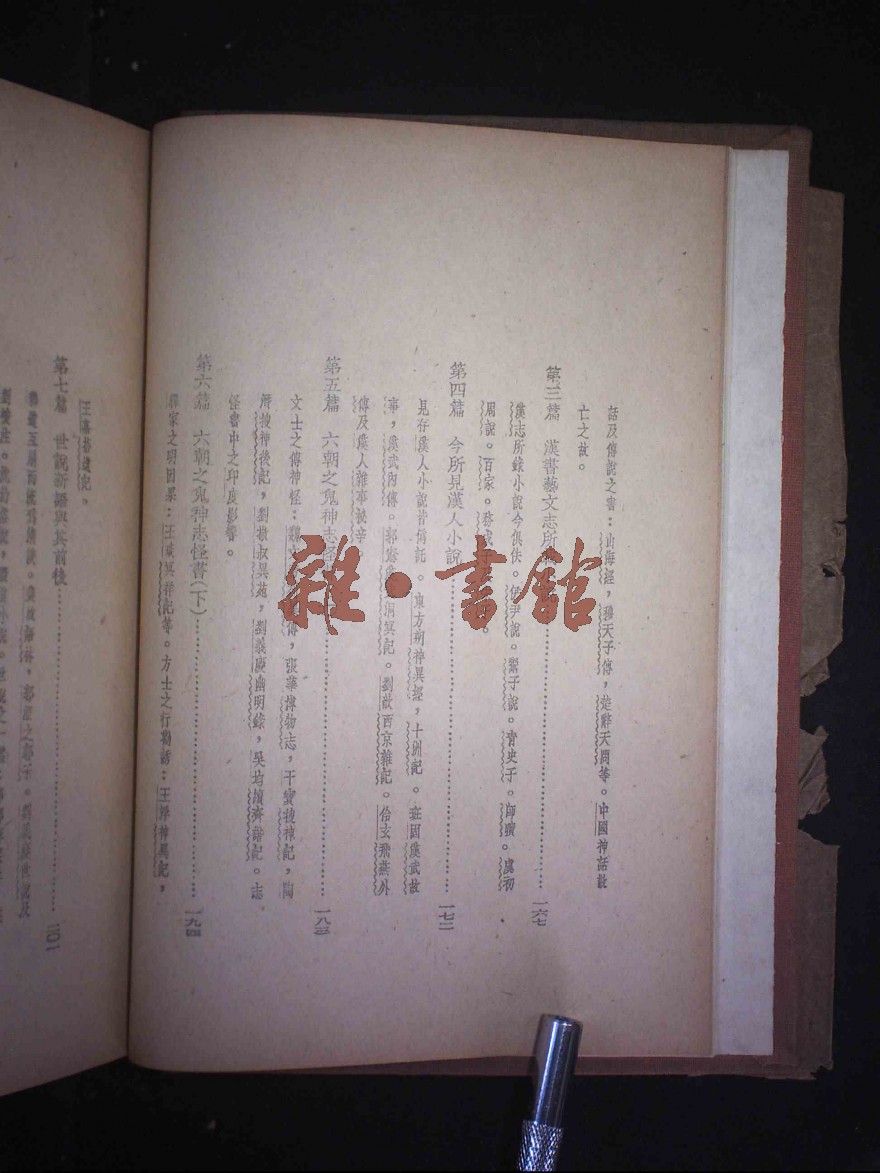 話及傳說之書：山海經，穆天子傳，楚辭天問等。中國神話散
亡之故。
第三篇 漢書藝文志所……一六七
漢志所錄小說今俱佚。伊尹說。鬻子說。青史子。師曠。虞初
周說。百家。務成子。
第四篇 今所見漢人小說……一七二
見存漢人小說皆僞託。東方朔神異經，十洲記。班固漢武故
事，漢武內傳。郭憲洞冥記。劉歆西京雜記。伶玄飛燕外
傳及漢人雜事祕辛
第五篇 六朝之鬼神志怪……一八三
文士之傳神怪：魏文傳，張華博物志，干寶搜神記，陶
潛搜神後記，劉敬叔異苑，劉義慶幽明錄，吳均續齊諧記。志
怪書中之印度影響。
第六篇 六朝之鬼神志怪書（下）……一九四
釋家之明因果：王琰冥祥記等。方士之行勸誘：王浮神異記，
王嘉拾遺記。
第七篇 世說新語與其前後……二〇一
雜·書館